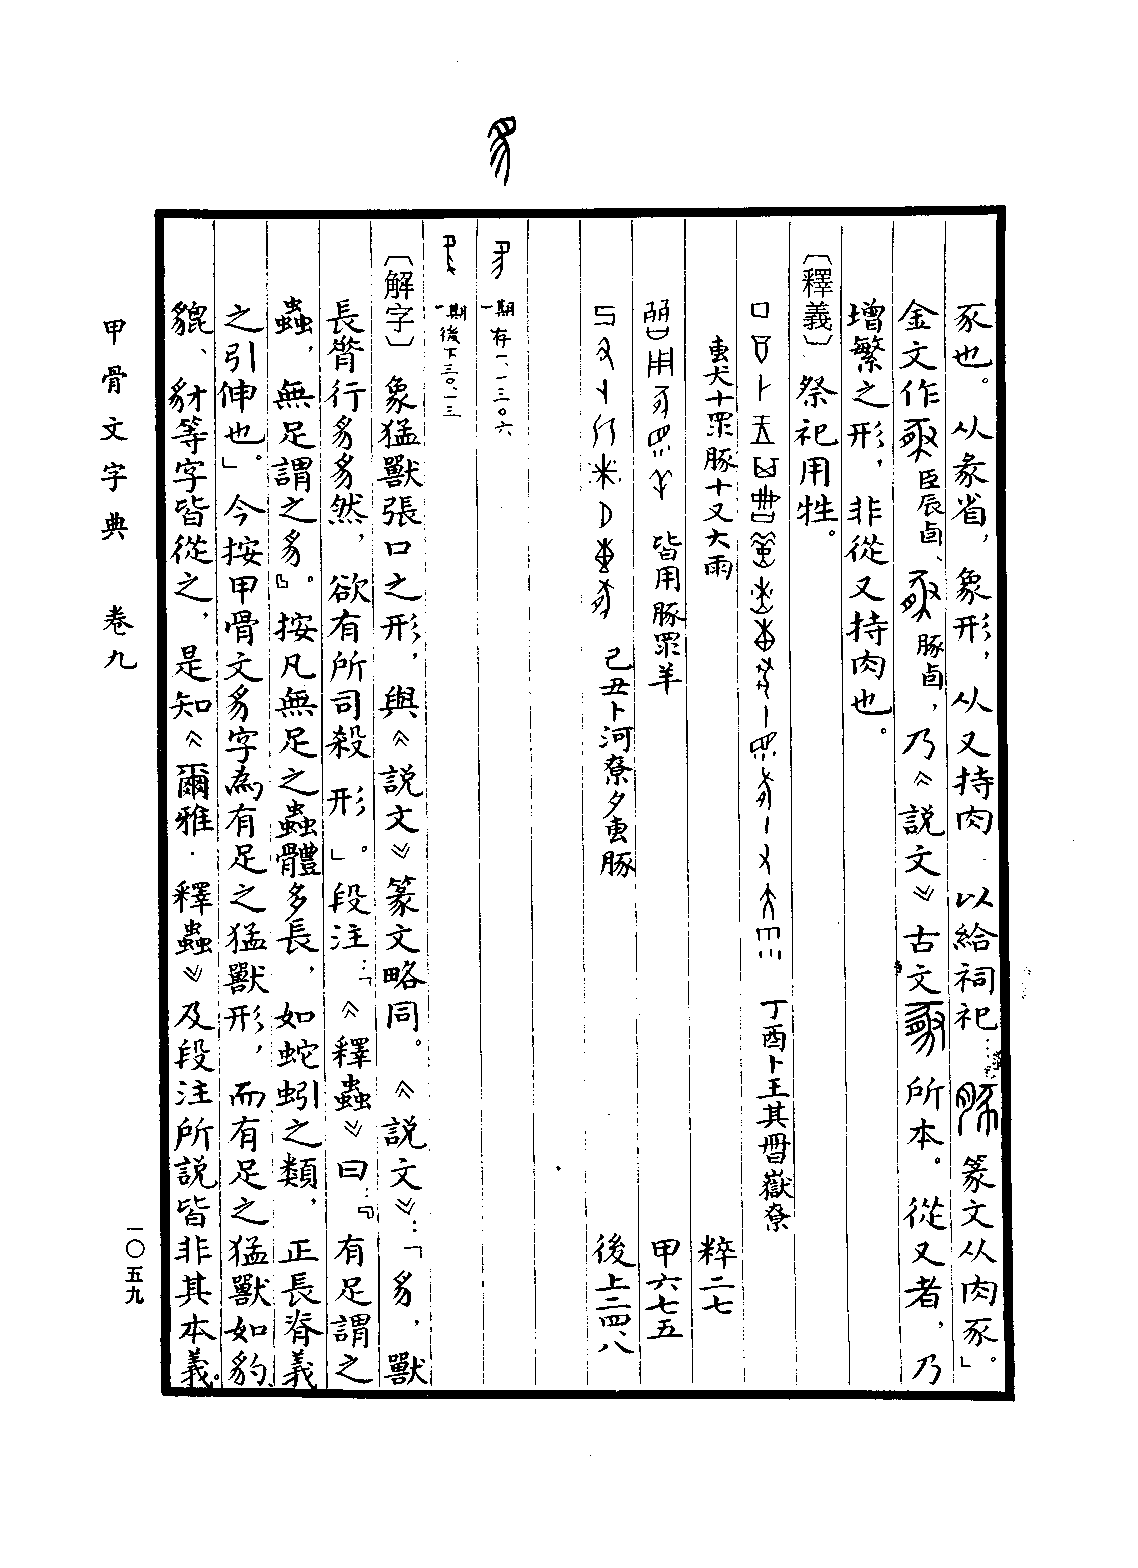 豕也。从彖省，象形，从又持肉，以給祠祀……篆文从肉豕」。
金文作 臣辰卣、 豚卣，乃《說文》古文 所本。從又者，乃
增繁之形，非從又持肉也。
〔釋義〕祭祀用牲。
丁酉卜王其𠕁嶽尞
叀犬十眔豚十又大雨 粹二七
皆用豚眔羊 甲六七五
己丑卜河尞夕叀豚 後上二四、八
一期存一、一三〇六
一期後下三〇、一三
〔解字〕象猛獸張口之形，與《說文》篆文略同。《說文》：「豸，獸
長脊行豸豸然，欲有所司殺形」。段注：「《釋蟲》曰：『有足謂之
蟲，無足謂之豸。』按凡無足之蟲體多長，如蛇蚓之類，正長脊義
之引伸也」。今按甲骨文豸字為有足之猛獸形，而有足之猛獸如豹、
貔、豺等字皆從之，是知《爾雅·釋蟲》及段注所說皆非其本義。
甲骨文字典 卷九
一〇五九